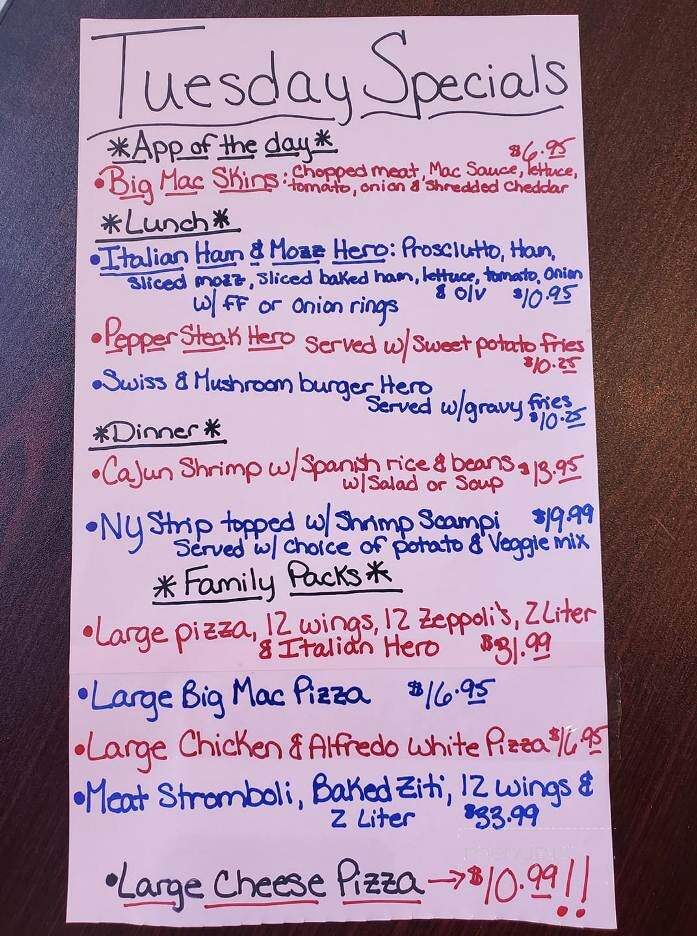 Tuesday Specials
*App of the day*
$6.95
•Big Mac Skins: Chopped meat, Mac Sauce, lettuce,
tomato, onion & Shredded Cheddar
*Lunch*
•Italian Ham & Mozz Hero: Prosciutto, Ham,
Sliced mozz, Sliced baked ham, lettuce, tomato, onion
& O/V $10.95
w/ FF or Onion rings
•Pepper Steak Hero Served w/ Sweet potato fries
$10.25
•Swiss & Mushroom burger Hero
Served w/gravy fries
$10.25
*Dinner*
•Cajun Shrimp w/Spanish rice & beans $13.95
w/Salad or Soup
•NY Strip topped w/ Shrimp Scampi $19.99
Served w/ choice of potato & Veggie mix
*Family Packs*
•Large pizza, 12 wings, 12 Zeppoli's, 2 Liter
& Italian Hero $31.99
•Large Big Mac Pizza $16.95
•Large Chicken & Alfredo White Pizza $16.95
•Meat Stromboli, Baked Ziti, 12 wings &
2 Liter $33.99
•Large Cheese Pizza → $10.99!!